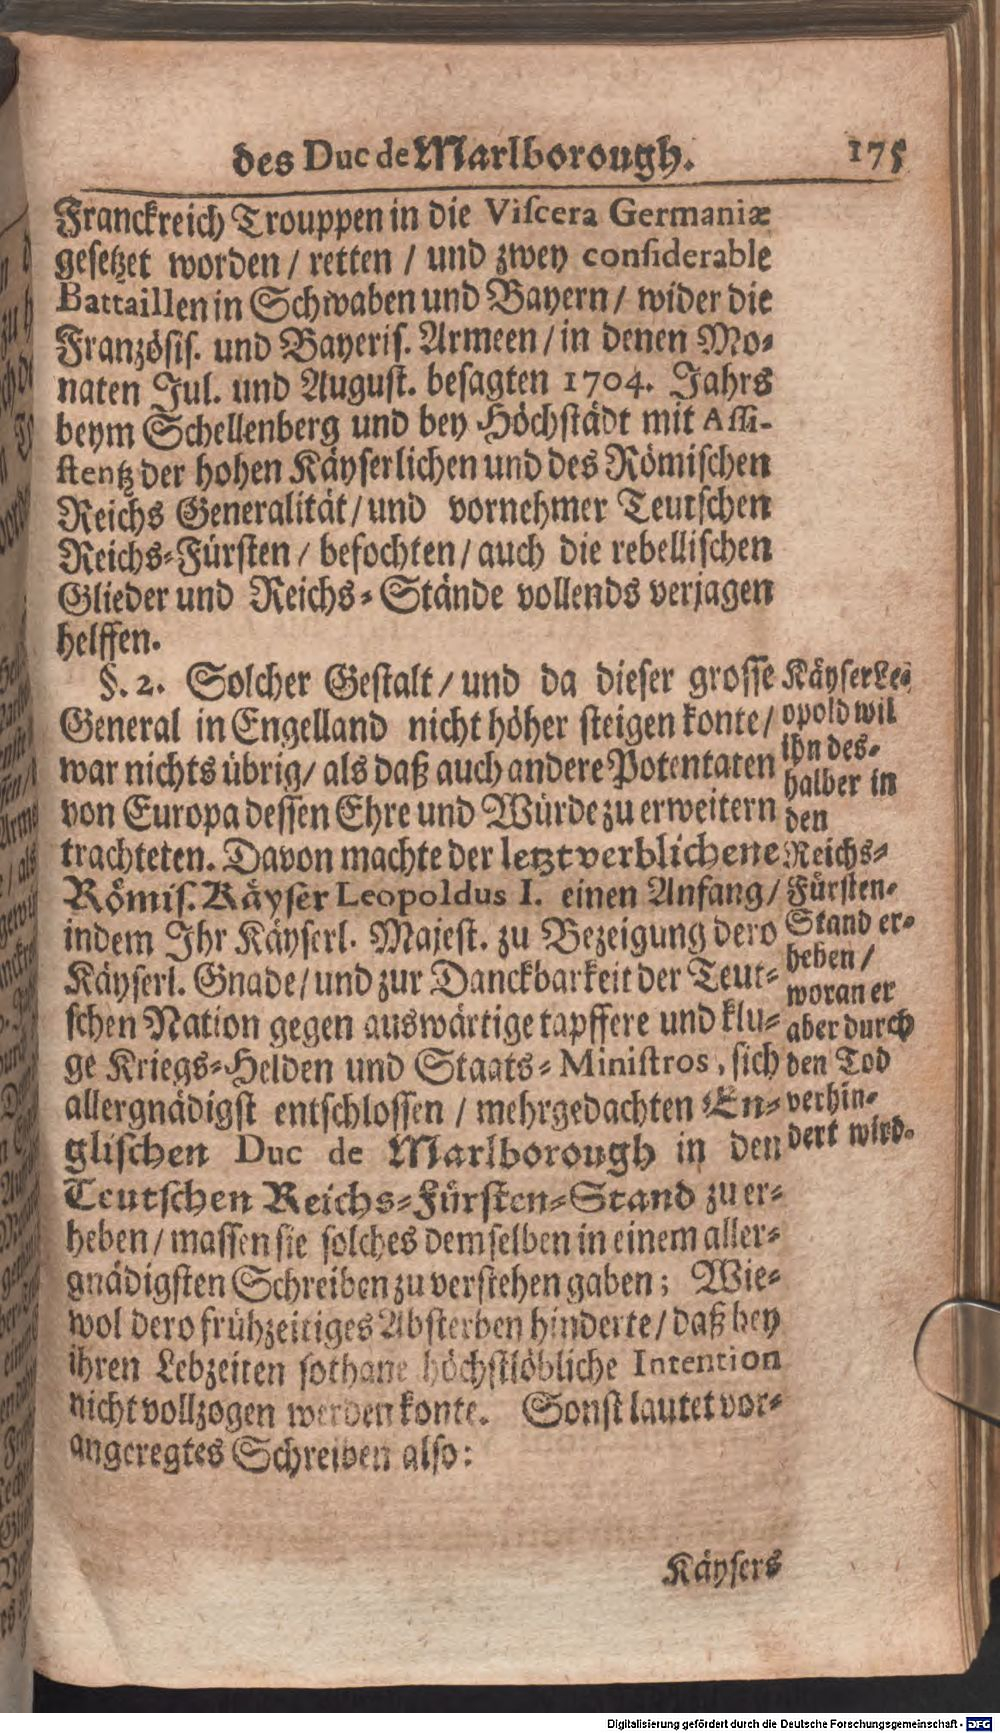 des Duc de Marlborough. 175
Franckreich Trouppen in die Viſcera Germaniæ
geſetzet worden / retten / und zwey conſiderable
Battaillen in Schwaben und Bayern / wider die
Franzöſiſ. und Bayeriſ. Armeen / in denen Mo-
naten Jul. und Auguſt. beſagten 1704. Jahrs
beym Schellenberg und bey Höchſtädt mit Aſſi-
ſtentz der hohen Käyſerlichen und des Römiſchen
Reichs Generalität / und vornehmer Teutſchen
Reichs-Fürſten / befochten / auch die rebelliſchen
Glieder und Reichs-Stände vollends verjagen
helffen.
§. 2. Solcher Geſtalt / und da dieſer groſſe
General in Engelland nicht höher ſteigen konte /
war nichts übrig / als daß auch andere Potentaten
von Europa deſſen Ehre und Würde zu erweitern
trachteten. Davon machte der letzt verblichene
Römiſ. Käyſer Leopoldus I. einen Anfang /
indem Ihr Käyſerl. Majeſt. zu Bezeigung dero
Käyſerl. Gnade / und zur Danckbarkeit der Teut-
ſchen Nation gegen auswärtige tapffere und klu-
ge Kriegs-Helden und Staats-Miniſtros, ſich
allergnädigſt entſchloſſen / mehrgedachten En-
gliſchen Duc de Marlborough in den
Teutſchen Reichs-Fürſten-Stand zu er-
heben / maſſen ſie ſolches demſelben in einem aller-
gnädigſten Schreiben zu verſtehen gaben; Wie-
wol dero frühzeitiges Abſterben hinderte / daß bey
ihren Lebzeiten ſothane höchſtlöbliche Intention
nicht vollzogen werden konte. Sonſt lautet vor-
angeregtes Schreiben alſo:
Käyſer Le-
opold wil
ihn des-
halber in
den
Reichs-
Fürſten-
Stand er-
heben /
woran er
aber durch
den Tod
verhin-
dert wird.
Käyſers
Digitalisierung gefördert durch die Deutsche Forschungsgemeinschaft - DFG